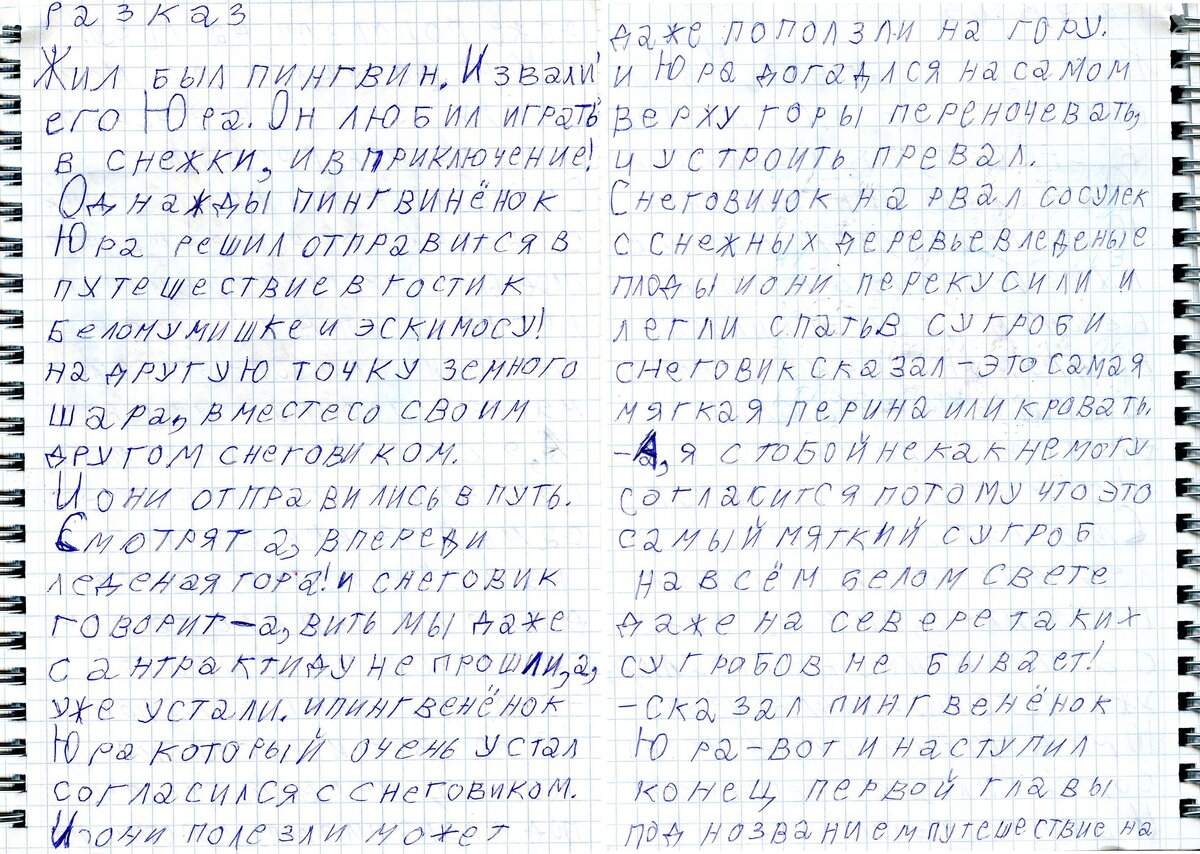 разказ
Жил был пингвин. И звали
его Юра. Он любил играть
в снежки, и в приключение!
Однажды пингвинёнок
Юра решил отправится в
путешествие в гости к
беломумишке и эскимосу!
на другую точку земного
шара, вместесо своим
другом снеговиком.
И они отправились в путь.
Смотрят а, впереди
леденая гора! и снеговик
говорит-а, вить мы даже
с антрактиду не прошли, а,
уже устали. ипингвенёнок
Юра который очень устал
согласился с снеговиком.
И они полезли может
даже поползли на гору.
и Юра догадлся на самом
верху горы переночевать,
и устроить превал.
Снеговичок на рвал сосулек
с снежных деревьев леденые
плоды и они перекусили и
легли спатьв сугроб и
снеговик сказал - это самая
мягкая перина или кровать.
-А, я с тобой некак немогу
соглакится потому что это
самый мягкий сугроб
на всём белом свете
даже на севере таких
сугробов не бывает!
-сказал пингвенёнок
Юра-вот и наступил
конец первой главы
под нозваниемпутешествие на